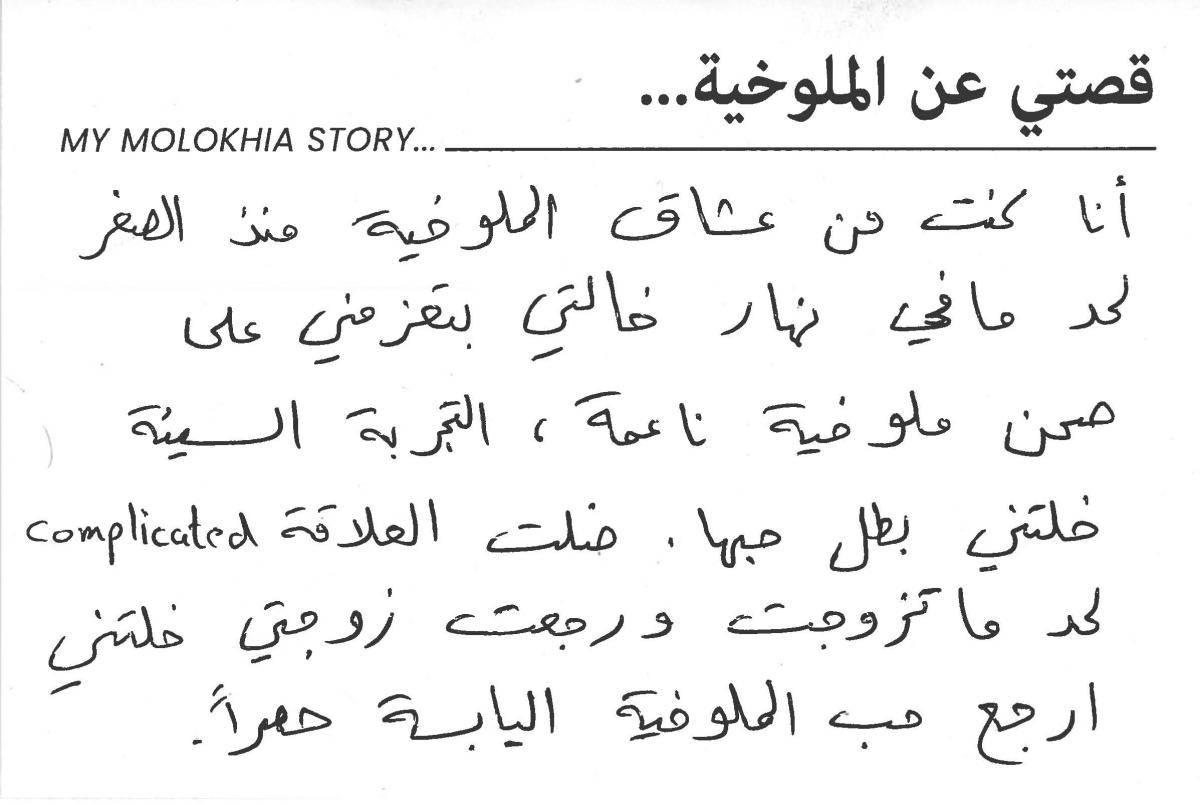 قصتي عن الملوخية...
MY MOLOKHIA STORY...
أنا كنت من عشاق الملوخية منذ الصغر
لحد ما في نهار خالتي بتعزمني على
صحن ملوخية ناعمة، التجربة السيئة
خلتني بطل حبها. ضلت العلاقة complicated
لحد ما تزوجت ورجعت زوجتي خلتني
ارجع حب الملوخية اليابسة حصراً.